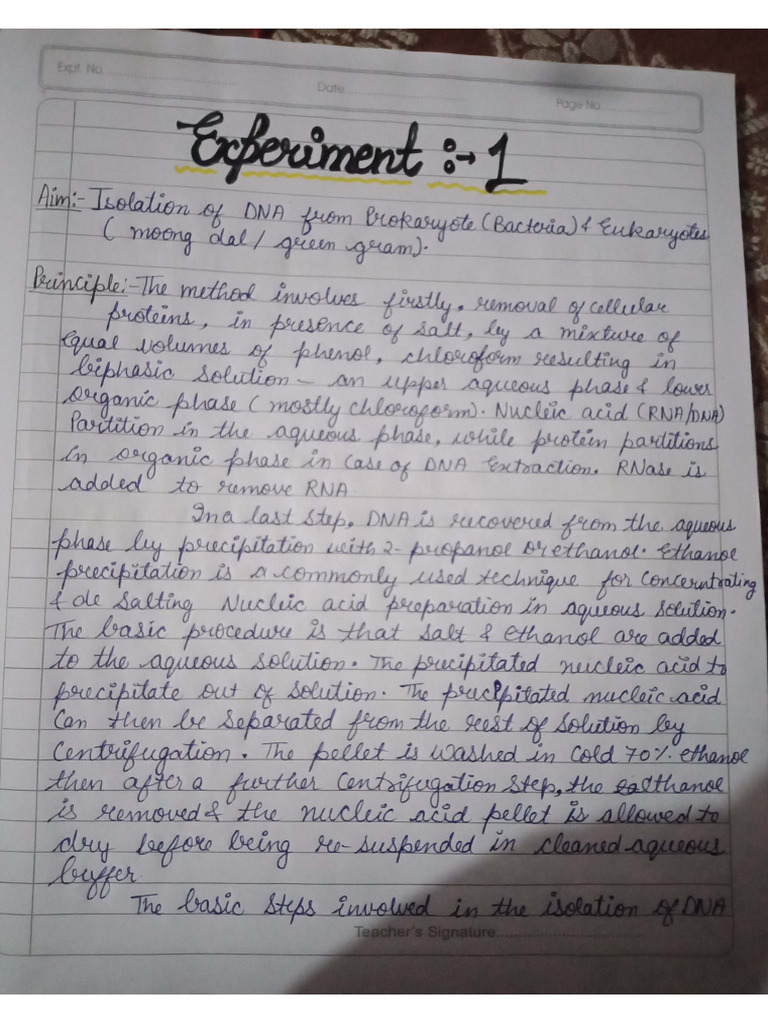 Expt. No.
Date
Page No.
Experiment :→ 1
Aim:- Isolation of DNA from Prokaryote (Bacteria) & Eukaryotes
( moong dal / green gram).
Principle:- The method involves firstly, removal of cellular
proteins, in presence of salt, by a mixture of
equal volumes of phenol, chloroform resulting in
biphasic solution - an upper aqueous phase & lower
organic phase ( mostly chloroform). Nucleic acid (RNA/DNA)
Partition in the aqueous phase, while protein partitions
in organic phase in case of DNA Extraction. RNase is
added to remove RNA
In a last step, DNA is recovered from the aqueous
phase by precipitation with 2- propanol or ethanol. Ethanol
precipitation is a commonly used technique for concerntrating
& de salting Nucleic acid preparation in aqueous solution.
The basic procedure is that salt & ethanol are added
to the aqueous solution. The precipitated nucleic acid to
precipitate out of solution. The precipitated nucleic acid
can then be separated from the rest of solution by
centrifugation. The pellet is washed in cold 70% ethanol
then after a further centrifugation step, the ethanol
is removed & the nucleic acid pellet is allowed to
dry before being re-suspended in cleaned aqueous
buffer.
The basic steps involved in the isolation of DNA
Teacher's Signature